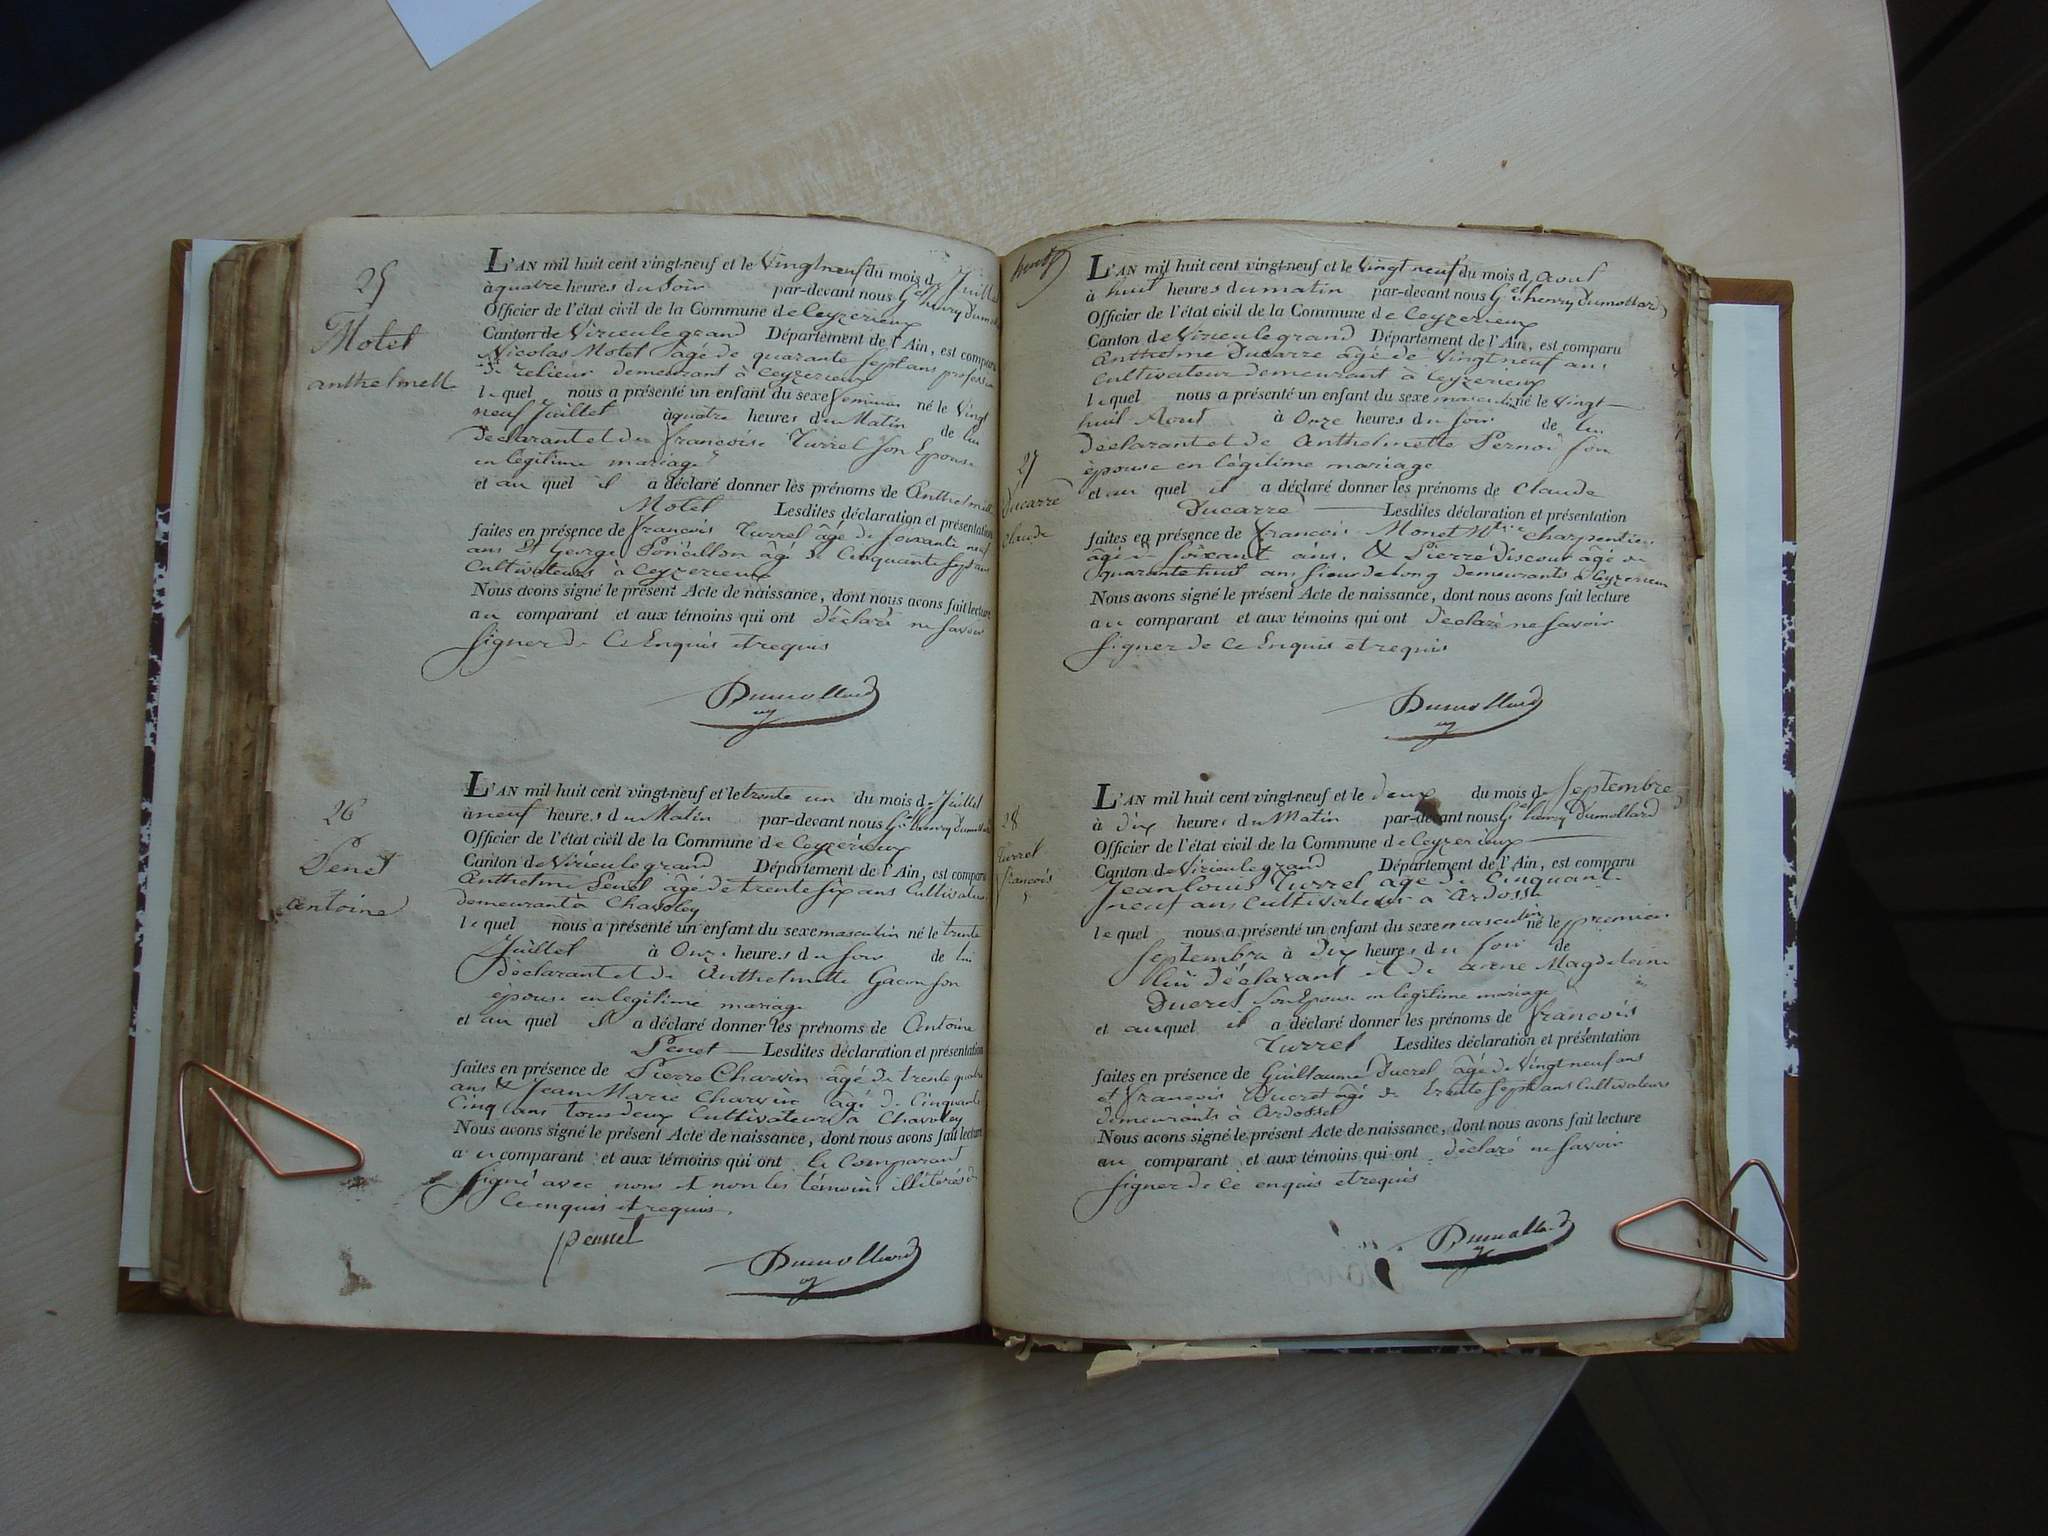 25
Motel
anthelmette
L'AN mil huit cent vingt-neuf et le Vingt neuf du mois de Juillet
à quatre heures du Soir par-devant nous Gel henry Dumollard
Officier de l'état civil de la Commune de Ceyzerieux
Canton de Virieulegrand Département de l'Ain, est comparu
Nicolas Motel âgé de quarante sept ans profession
de relieur demeurant à Ceyzerieux
lequel nous a présenté un enfant du sexe feminin né le Vingt
neuf Juillet à quatre heures du Matin de lui
Déclarant et de françoise Turrel Son Epouse
en legitime mariage
et au quel il a déclaré donner les prénoms de Anthelmette
Motel Lesdites déclaration et présentation
faites en présence de françois Turrel âgé de soixante neuf
ans et George Ponçillon âgé de Cinquante sept ans
Cultivateurs à Ceyzerieux
Nous avons signé le présent Acte de naissance, dont nous avons fait lecture
au comparant et aux témoins qui ont déclaré ne savoir
signer de Ce Enquis et requis
Dumollard
26
Penet
antoine
L'AN mil huit cent vingt-neuf et le trente un du mois de Juillet
à neuf heures du Matin par-devant nous Gel henry Dumollard
Officier de l'état civil de la Commune de Ceyzerieux
Canton de Virieulegrand Département de l'Ain, est comparu
Anthelme Penet âgé de trente six ans Cultivateur
demeurant à Chavoley
lequel nous a présenté un enfant du sexe masculin né le trente
Juillet à Onze heures du soir de lui
déclarant et de Anthelmette Gacon son
épouse en legitime mariage
et au quel il a déclaré donner les prénoms de Antoine
Penet Lesdites déclaration et présentation
faites en présence de Pierre Charvin âgé de trente quatre
ans & Jean Marie Charvin âgé de Cinquante
Cinq ans tous deux Cultivateurs à Chavoley
Nous avons signé le présent Acte de naissance, dont nous avons fait lecture
au comparant et aux témoins qui ont le Comparant
signé avec nous et non les témoins illiterés de
Ce enquis et requis.
pennet
Dumollard
27
Ducarre
Claude
L'AN mil huit cent vingt-neuf et le Vingt neuf du mois d'Aout
à huit heures du matin par-devant nous Gel henry Dumollard
Officier de l'état civil de la Commune de Ceyzerieux
Canton de Virieulegrand Département de l'Ain, est comparu
Anthelme Ducarre âgé de Vingt neuf ans
Cultivateur demeurant à Ceyzerieux
lequel nous a présenté un enfant du sexe masculin né le Vingt
huit Aout à Onze heures du soir de lui
Déclarant et de Anthelmette Pernoi son
épouse en légitime mariage
et au quel il a déclaré donner les prénoms de Claude
Ducarre Lesdites déclaration et présentation
faites en présence de françois Monet charpentier
âgé de soixant ans. & Pierre Viscour âgé de
quarante huit ans sieur de long demeurants à Ceyzerieux
Nous avons signé le présent Acte de naissance, dont nous avons fait lecture
au comparant et aux témoins qui ont déclaré ne savoir
signer de Ce Enquis et requis
Dumollard
28
Turrel
françois
L'AN mil huit cent vingt-neuf et le deux du mois de Septembre
à dix heures du Matin par-devant nous Gel henry Dumollard
Officier de l'état civil de la Commune de Ceyzerieux
Canton de Virieulegrand Département de l'Ain, est comparu
Jean Louis Turrel âgé de Cinquant
neuf ans Cultivateur à Ardosset
lequel nous a présenté un enfant du sexe masculin né le premier
Septembre à Dix heures du soir de
lui déclarant et de anne Magdeleine
Ducret son Epouse en legitime mariage
et au quel il a déclaré donner les prénoms de françois
Turrel Lesdites déclaration et présentation
faites en présence de Guillaume Ducret âgé de Vingt neuf ans
et françois Ducret âgé de trente sept ans Cultivateurs
demeurants à Ardosset
Nous avons signé le présent Acte de naissance, dont nous avons fait lecture
au comparant et aux témoins qui ont déclaré ne savoir
signer de Ce enquis et requis
Dumollard